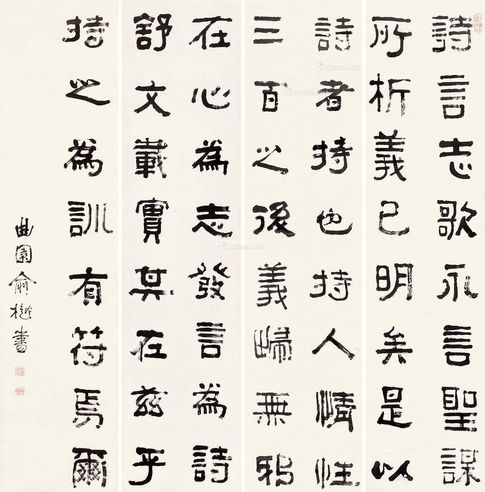 詩言志歌永言聖謀
所析義已明矣是以
詩者持也持人情性
三百之後義歸無邪
在心為志發言為詩
舒文載實其在茲乎
持之為訓有符焉爾
曲園俞樾書